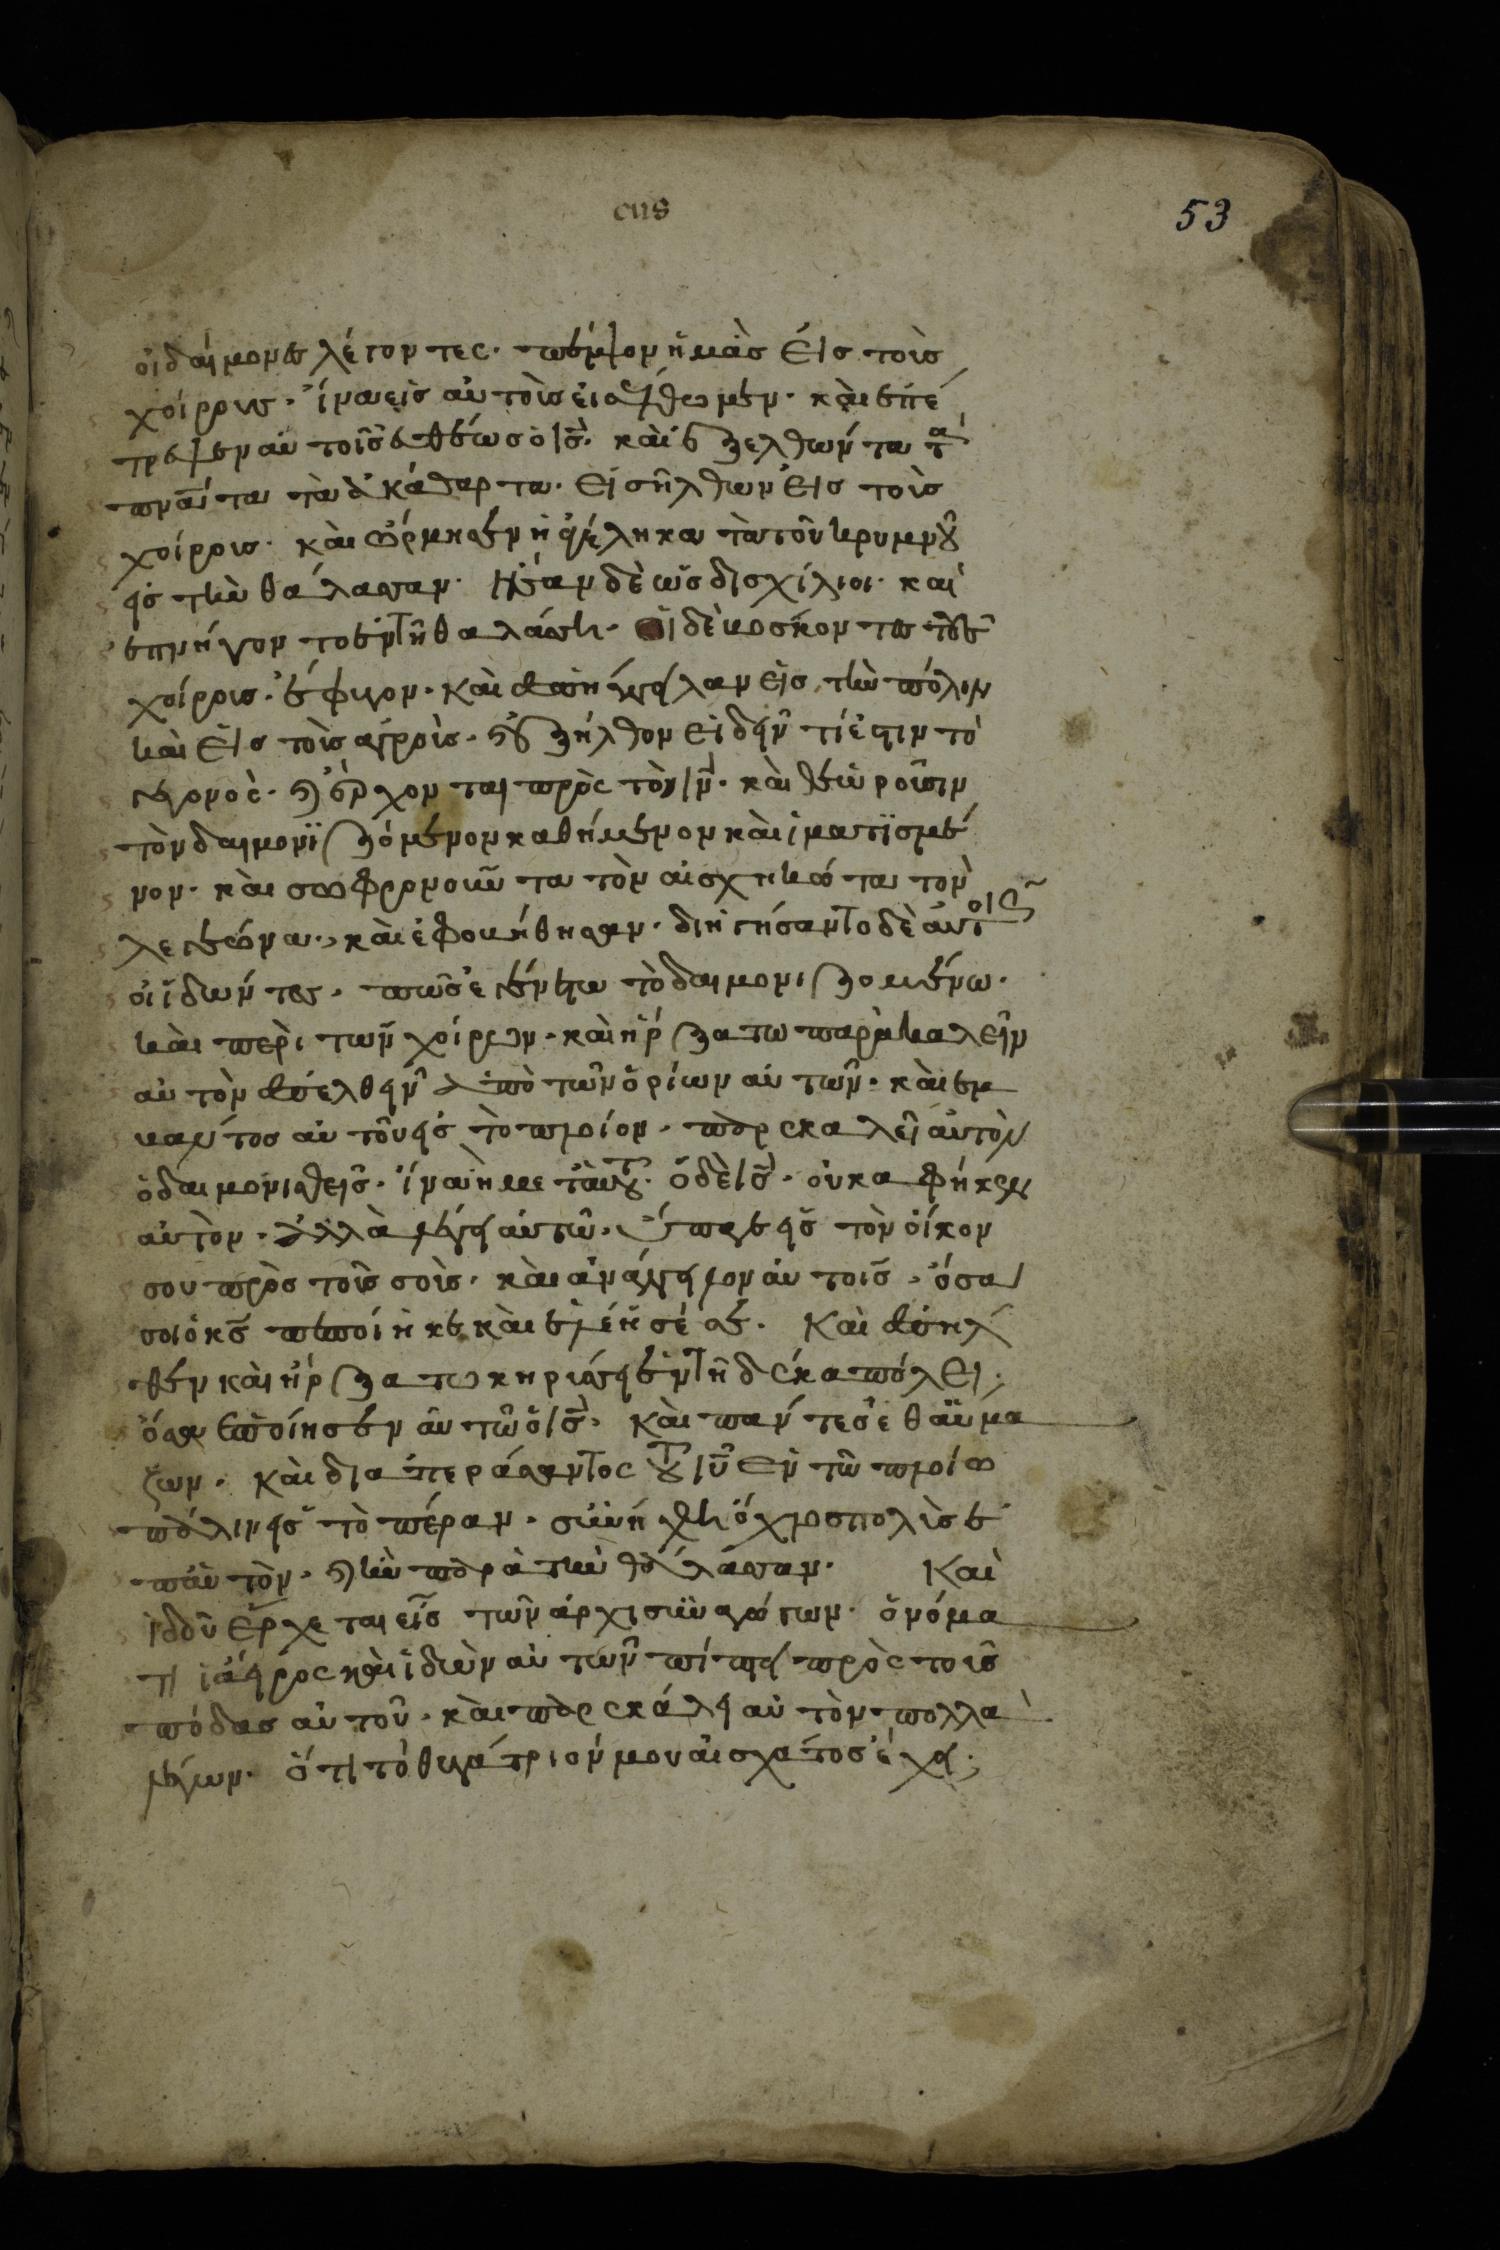 σπς 53
οἱ δαίμονες λέγοντες. πέμψον ἡμὰς εἰς τοὺς
χοίρους. ἵνα εἰς αὐτοὺς εἰσέλθωμεν. καὶ ἐπέ
τρεψεν αὐτοῖς εὐθέως ὁ ις̅. καὶ ἐξελθών τα τὰ
πνα̅τα τὰ ἀκάθαρτα. εἰσῆλθων εἰς τοὺς
χοίρους. καὶ ὥρμησεν ἡ ἀγέλη κατὰ τοῦ κρυμνοῦ
εἰς τὴν θάλασσαν. ἦσαν δὲ ὡς δισχίλιοι. καὶ
ἐπνήγοντο ἐν τῆ θαλάσση. οἱ δὲ βόσκοντες τοὺς
χοίρους. ἔφυγον. καὶ ἀπήγγειλαν εἰς τὴν πόλιν
καὶ εἰς τοὺς ἀγρούς. καὶ ἐξήλθον εἰδεῖν τί ἐστιν τὸ
γεγονός. καὶ ἔρχονται πρὸς τὸν ιν̅. καὶ θεωροῦσιν
τὸν δαιμονϊζόμενον καθήμενον καὶ ἱματϊσμέ
νον. καὶ σωφρονοῦντα τὸν αἰσχηκότα τὸν
λεγεῶνα. καὶ ἐφοβήθησαν. διηγήσαντο δὲ αὐτοῖς
οἱ ἰδώντες. πῶς ἐγένετω τὸ δαιμονιζομένω.
καὶ περὶ τῶν χοίρων. καὶ ἤρξατω παρακαλεῖν
αὐτὸν ἀπελθεῖν ἀπὸ τῶν ὁρίων αὐτῶν. καὶ ἐμ
βαντος αὐτοῦ εἰς τὸ πλοίον. παρεκαλεῖ αὐτὸν
ὁ δαιμονισθεὶς. ἵνα ἦ μετ αὐτοῦ. ὁ δὲ ις̅. οὐκ αφήκεν
αὐτὸν. ἀλλὰ λέγει αὐτῶ. ὕπαγε εἰς τὸν οἶκον
σου πρὸς τοὺς σοὺς. καὶ ἀνάγγειλον αὐτοῖς. ὅσα
σοι ὁ κς̅ πεποίηκε καὶ ἐλέησέ σε. Καὶ ἀπηλ
θεν καὶ ἤρξατω κηρισσειν ἐν τῆ δεκαπόλει;
ὅσα ἐποίησεν αὐτῶ ὁ ις̅. καὶ πάντες ἐθαύμα
ζων. καὶ διαπεράσαντος τοῦ ιυ̅ ἐν τῶ πλοίω
πάλιν εἰς τὸ πέραν. συνήχθη ὄχλος πολὺς ἐ
π αὐτὸν. καὶ ἦν παρὰ τὴν θάλασσαν. Καὶ
ἰδοῦ ἔρχεται εἷς τῶν ἀρχισυναγώγων. ὀνόμα
τι ἰάηρος καὶ ἰδὼν αὐτῶν πίπτει πρὸς τοὺς
πόδας αὐτοῦ. καὶ παρεκάλει αὐτὸν πολλὰ
λέγων. ὅτι τὸ θυγάτριόν μου αἰσχάτος ἔχει;